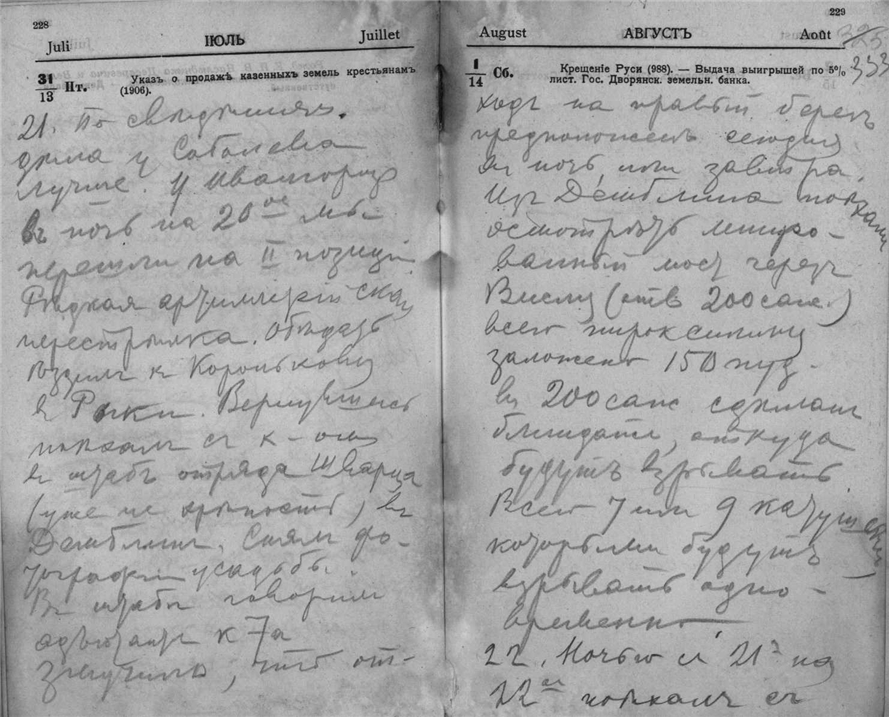 228
Juli ІЮЛЬ Juillet
31/13 Пт. Указъ о продажѣ казенныхъ земель крестьянамъ
(1906).
21. По свѣдѣніямъ
дѣла у Соболева
лучше. У Ивангорода
въ ночь на 20ое мы
перешли на II позицію
Рѣдкая артиллерійская
перестрѣлка. Обѣдать
ѣздилъ к Королькову
в Рыки. Вернувшись
поѣхалъ съ к-омъ
въ штабъ отряда Шварца
(уже не крѣпость) въ
Демблинъ. Снялъ фо-
тографіи усадьбы.
Въ штабѣ говорили
адъютантъ к 7а
, что от-
229
August АВГУСТЪ Août
325
333
1/14 Сб. Крещеніе Руси (988). — Выдача выигрышей по 5%
лист. Гос. Дворянск. земельн. банка.
ходъ на правый берегъ
предположенъ сегодня
въ ночь, или завтра.
Изъ Демблина поѣхали
осмотрѣть миниро-
ванный мостъ черезъ
Вислу ( 200 саж.)
всего пироксилину
заложено 150 пуд.
въ 200 саж сдѣланъ
блиндажъ, откуда
будутъ взрывать
Всего 7 или 9 катушекъ,
которыми будутъ
взрывать одно-
временно
22. Ночью съ 21го на
22ое поѣхалъ съ